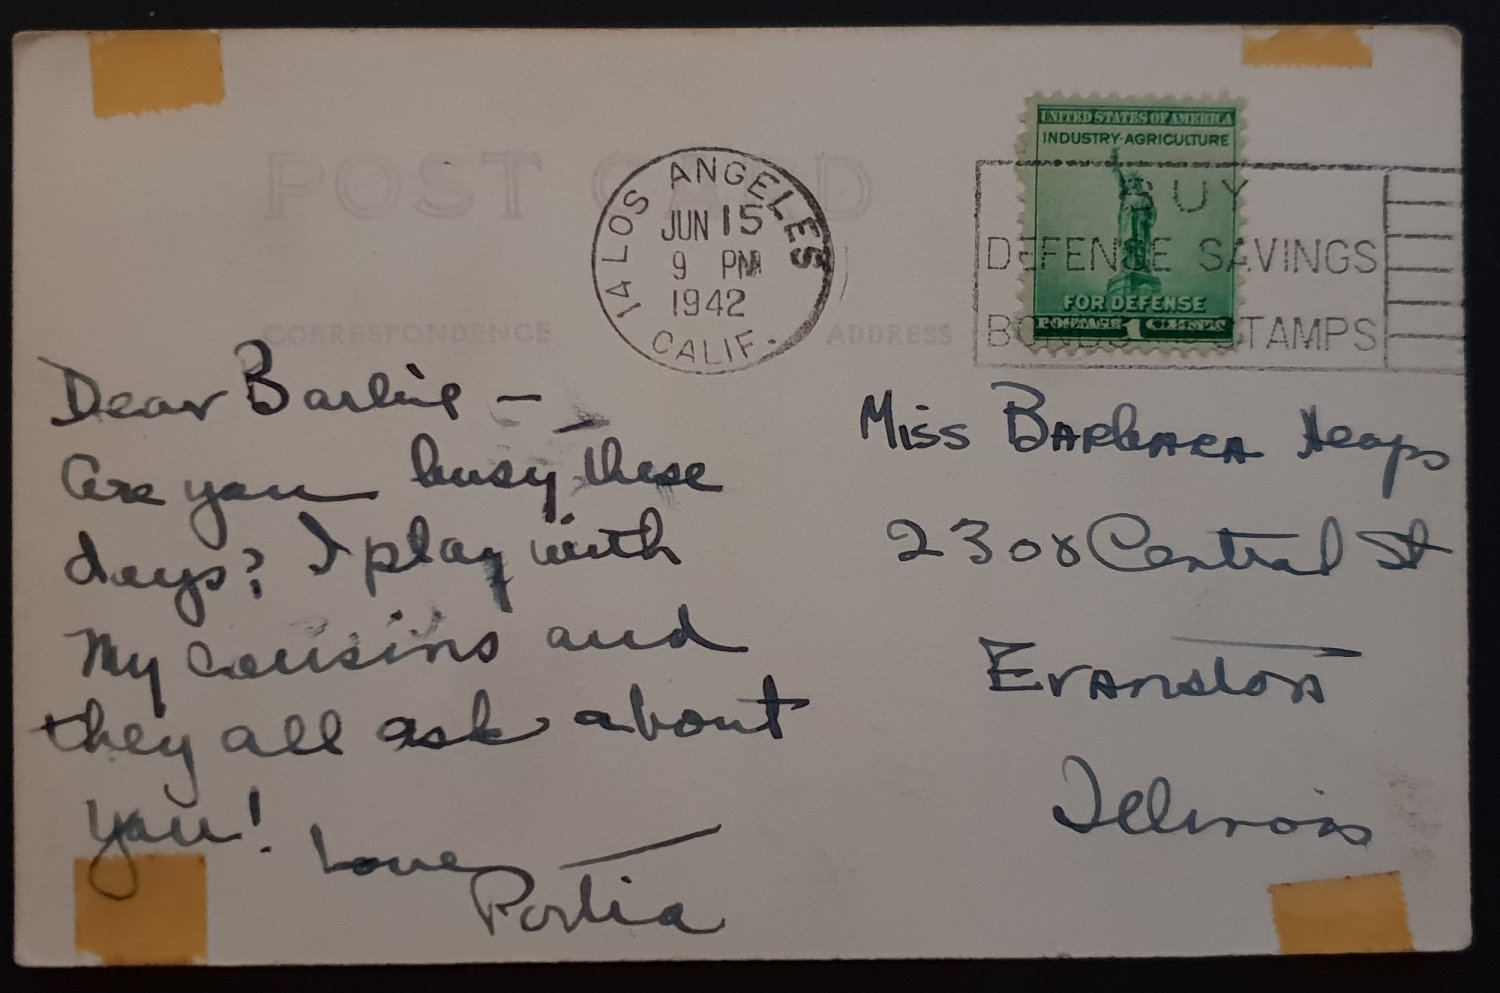 POST CARD
14 LOS ANGELES CALIF.
JUN 15
9 PM
1942
UNITED STATES OF AMERICA
INDUSTRY-AGRICULTURE
FOR DEFENSE
POSTAGE 1 CENTS
BUY
DEFENSE SAVINGS
BONDS STAMPS
CORRESPONDENCE
ADDRESS
Dear Barbie –
Are you busy these
days? I play with
my cousins and
they all ask about
you!
Love
Portia
Miss Barbara Heaps
2308 Central St
Evanston
Illinois